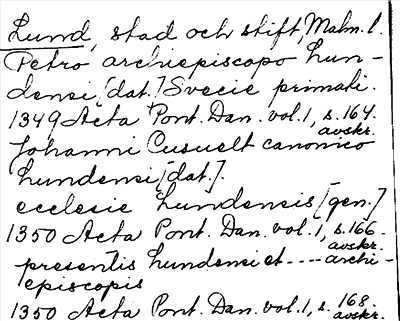 Lund, stad och stift, Malm. l.
Petro archiepiscopo Lun-
densi [dat.] Svecie primati.
1349 Acta Pont. Dan. vol. 1, s. 164.
avskr.
Johanni Cusuelt canonico
Lundensi [dat.].
ecclesie Lundensis [gen.]
1350 Acta Pont. Dan. vol. 1, s. 166.
avskr.
presentis Lundensi et ---- archi-
episcopis
1350 Acta Pont. Dan. vol. 1, s. 168.
avskr.